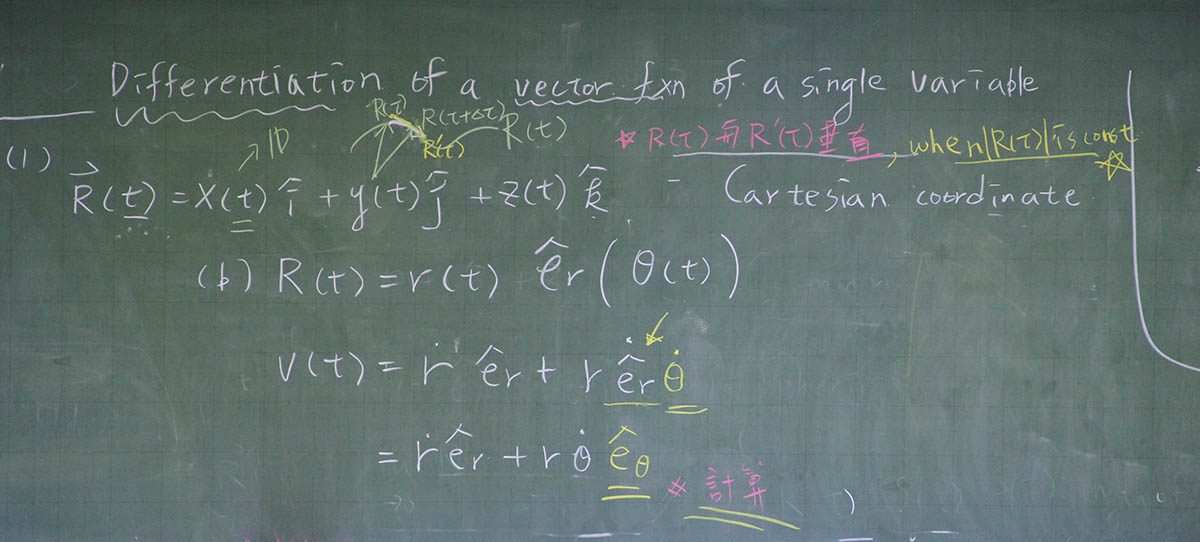 Differentiation of a vector fxn of a single variable
R(τ) R(τ+Δτ) R'(τ) R(t)
☆ R(τ) 與 R'(τ) 垂直, when |R(τ)| is const ☆
(1) 1D
R⃗(t) = x(t) î + y(t) ĵ + z(t) k̂ - Cartesian coordinate
(b) R(t) = r(t) ê_r (θ(t))
V(t) = ṙ ê_r + r ê̇_r θ̇
= ṙ ê_r + r θ̇ ê_θ
* 計算